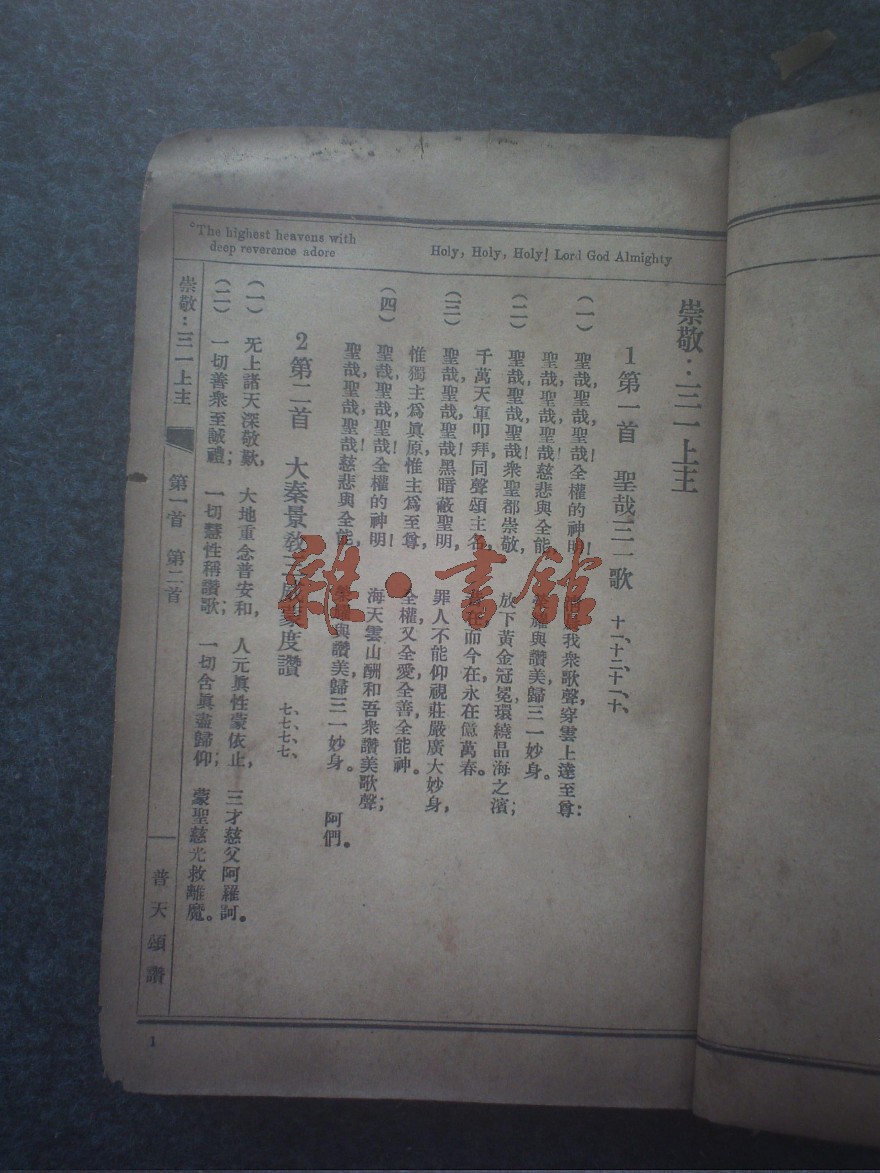 °The highest heavens with
deep reverence adore
Holy, Holy, Holy! Lord God Almighty
崇敬：三一上主
1 第一首 聖哉三一歌 十一、十二、十一、十、
（一） 聖哉,聖哉,聖哉!全權的神明! 我衆歌聲,穿雲上達至尊:
聖哉,聖哉,聖哉!慈悲與全能, 與讚美,歸三一妙身。
（二） 聖哉,聖哉,聖哉!衆聖都崇敬, 放下黃金冠冕,環繞晶海之濱;
千萬天軍叩拜,同聲頌主名, 而今在,永在億萬春。
（三） 聖哉,聖哉,聖哉!黑暗蔽聖明, 罪人不能仰視莊嚴廣大妙身,
惟獨主爲眞原,惟主爲至尊, 全權又全愛,全善全能神。
（四） 聖哉,聖哉,聖哉!全權的神明! 海天雲山酬和吾衆讚美歌聲;
聖哉,聖哉,聖哉!慈悲與全能, 與讚美,歸三一妙身。 阿們。
2 第二首 大秦景敎三威蒙度讚 七、七、七、七、
（一） 无上諸天深敬歎, 大地重念普安和, 人元眞性蒙依止, 三才慈父阿羅訶。
（二） 一切善衆至誠禮; 一切慧性稱讚歌; 一切含眞盡歸仰; 蒙聖慈光救離魔。
崇敬：三一上主 第一首 第二首 普天頌讚
1
雜·書館